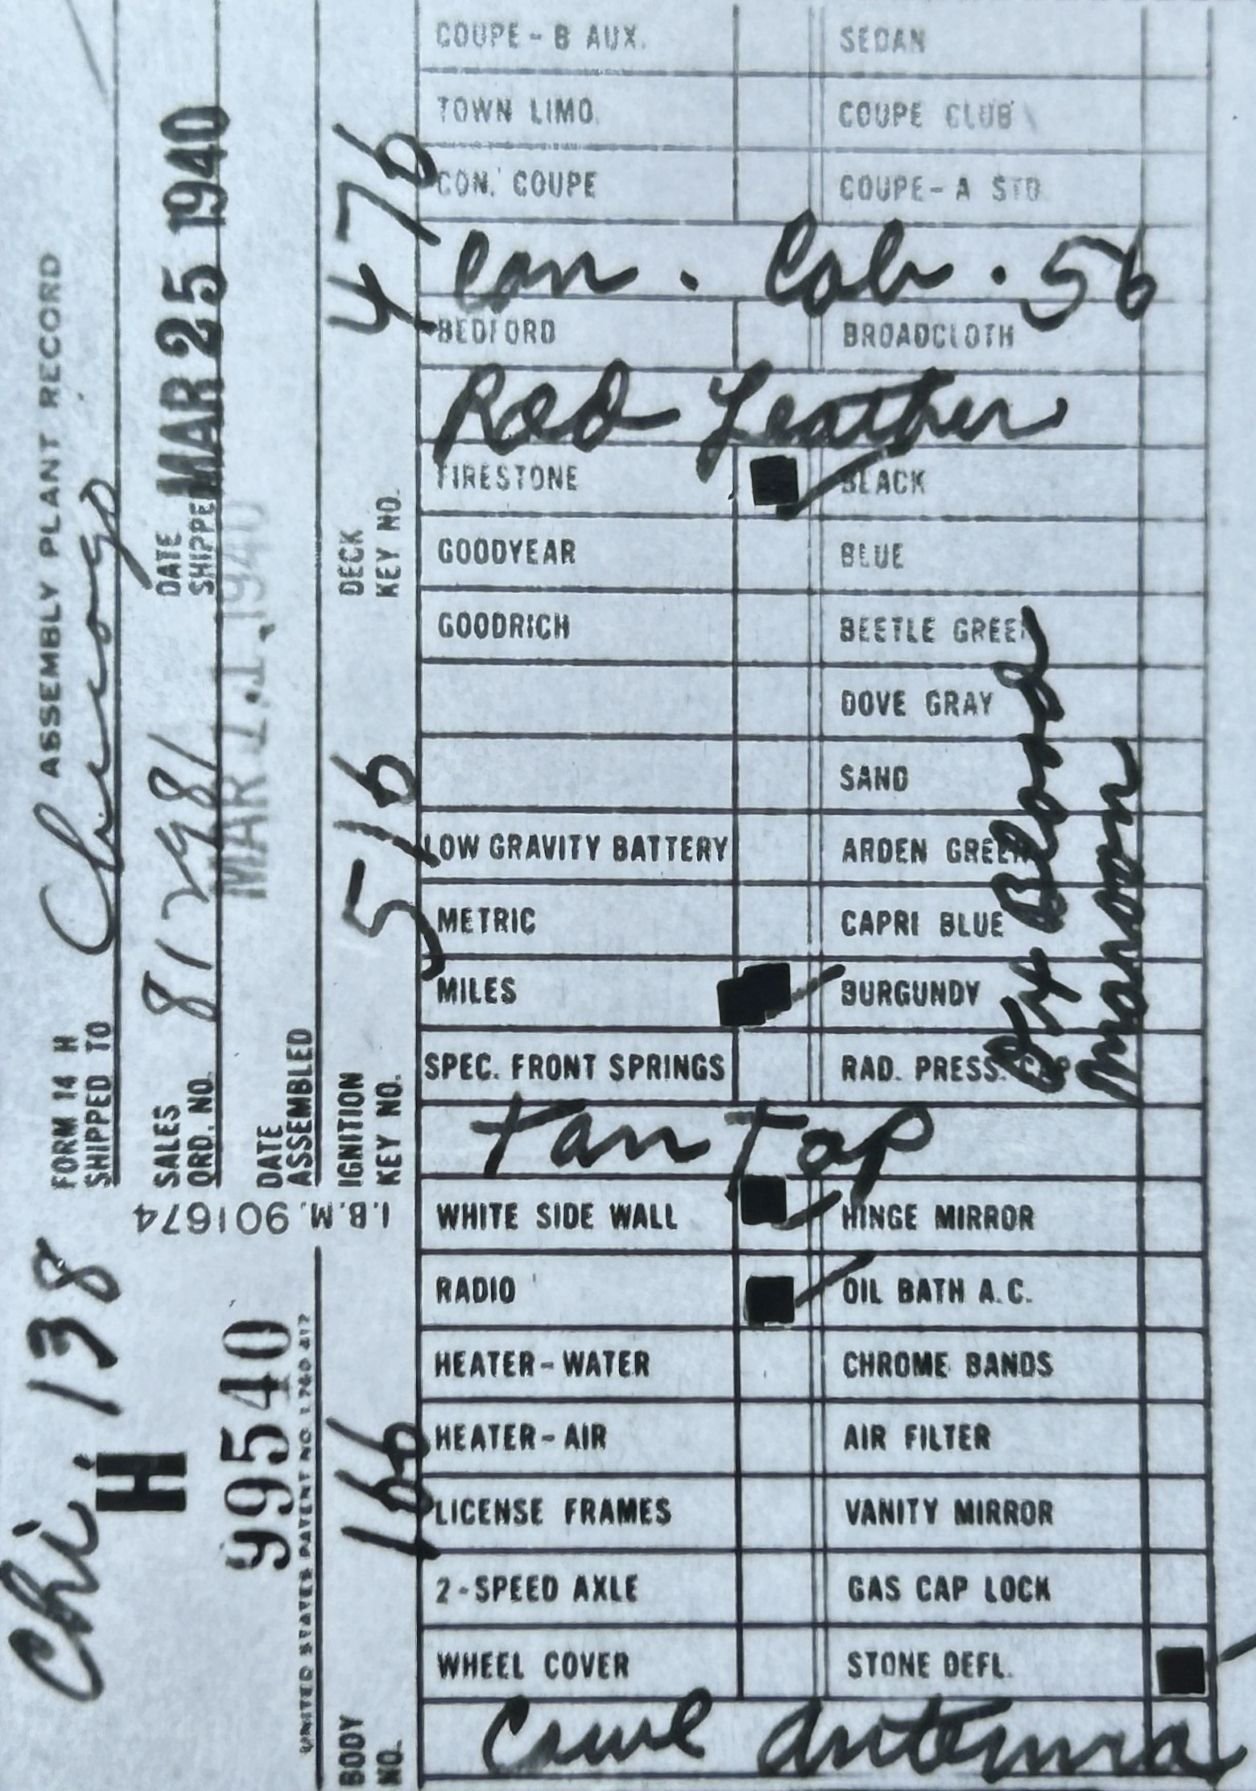 FORM 14 H ASSEMBLY PLANT RECORD
SHIPPED TO Chicago
SALES ORD. NO. 81298/
DATE SHIPPE MAR 25 1940
DATE ASSEMBLED
IGNITION KEY NO. 516
DECK KEY NO. 476
I.B.M. 901674
Chi. 138
H
99540
UNITED STATES PATENT NO. 1,780,412
BODY NO. 166
COUPE - B AUX. SEDAN
TOWN LIMO. COUPE CLUB
CON. COUPE COUPE - A STD.
Con. Cab. 56
BEDFORD BROADCLOTH
Red Leather
FIRESTONE BLACK
GOODYEAR BLUE
GOODRICH BEETLE GREEN
DOVE GRAY
SAND
LOW GRAVITY BATTERY ARDEN GREEN
METRIC CAPRI BLUE
MILES BURGUNDY
SPEC. FRONT SPRINGS RAD. PRESS. CAP
Ox Blood
Maroon
Tan Top
WHITE SIDE WALL HINGE MIRROR
RADIO OIL BATH A.C.
HEATER - WATER CHROME BANDS
HEATER - AIR AIR FILTER
LICENSE FRAMES VANITY MIRROR
2 - SPEED AXLE GAS CAP LOCK
WHEEL COVER STONE DEFL.
Cowl Antenna